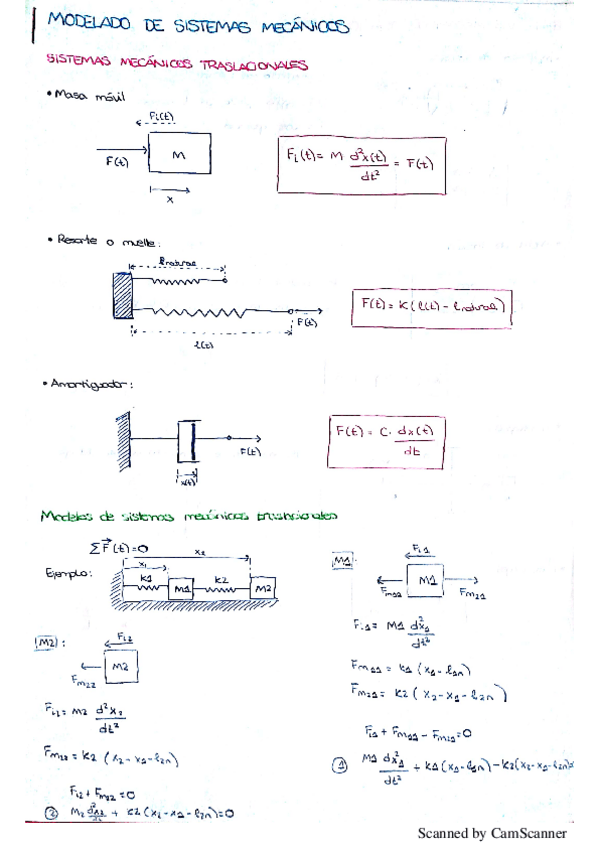 MODELADO DE SISTEMAS MECÁNICOS
SISTEMAS MECÁNICOS TRASLACIONALES
• Masa móvil
Fi(t)
F(t)
M
x
Fi(t) = M d²x(t)/dt² = F(t)
• Resorte o muelle:
lnatural
F(t)
l(t)
F(t) = K(l(t) - lnatural)
• Amortiguador:
F(t)
x(t)
F(t) = C · dx(t)/dt
Modelos de sistemas mecánicos traslacionales
ΣF(t)=0
Ejemplo:
x2
x1
K1
M1
K2
M2
M1:
Fi1
M1
Fm11
Fm21
Fi1 = M1 d²x1/dt²
Fm11 = K1 (x1 - l1n)
Fm21 = K2 (x2 - x1 - l2n)
Fi1 + Fm11 - Fm21 = 0
① M1 d²x1/dt² + K1(x1 - l1n) - K2(x2 - x1 - l2n)=
M2:
Fi2
M2
Fm22
Fi2 = M2 d²x2/dt²
Fm22 = K2 (x2 - x1 - l2n)
Fi2 + Fm22 = 0
② M2 d²x2/dt + K2 (x2 - x1 - l2n) = 0
Scanned by CamScanner